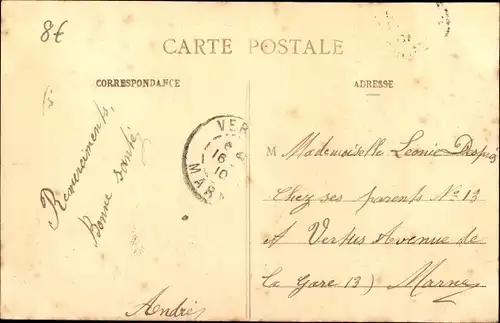 8€
CARTE POSTALE
CORRESPONDANCE
ADRESSE
Remerciments,
Bonne santé
André
VER
16
10
MAR
M Mademoiselle Leonie
Chez ses parents No 13
A Vertus Avenue de
la Gare 13) Marne